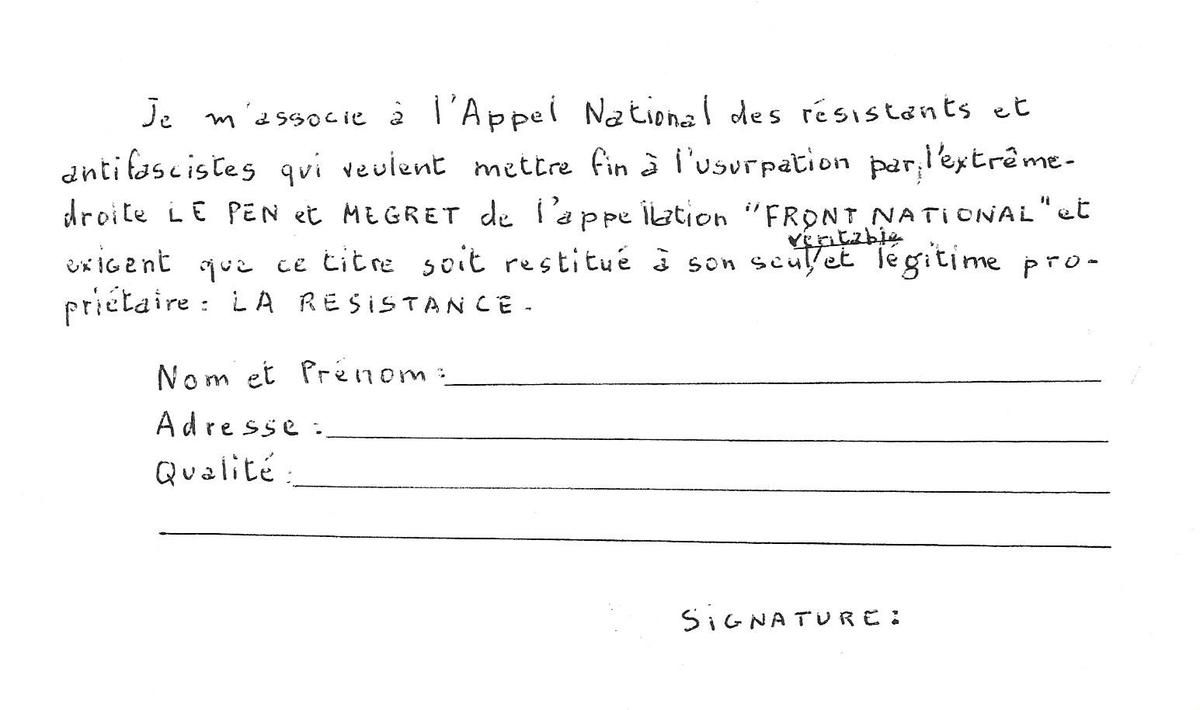 Je m'associe à l'Appel National des résistants et
antifascistes qui veulent mettre fin à l'usurpation par l'extrême-
droite LE PEN et MEGRET de l'appellation "FRONT NATIONAL" et
véritable
exigent que ce titre soit restitué à son seul, et légitime pro-
priétaire : LA RESISTANCE.
Nom et Prénom :
Adresse :
Qualité :
SIGNATURE :